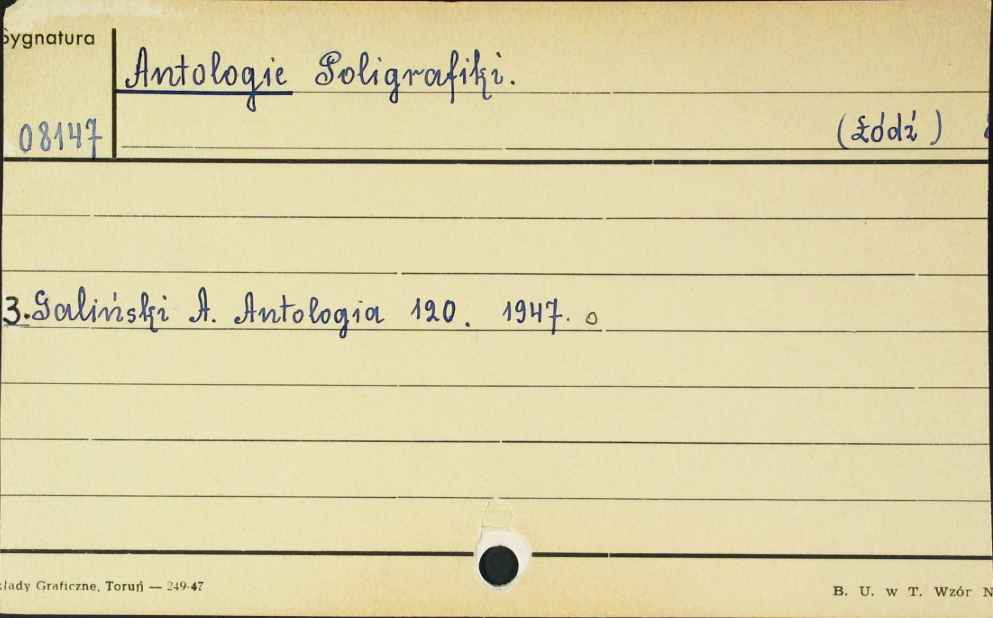 Sygnatura
Antologie Poligrafiki.
08147
(Łódź)
3. Galiński A. Antologia 120. 1947.
łady Graficzne, Toruń — 249-47
B. U. w T. Wzór N